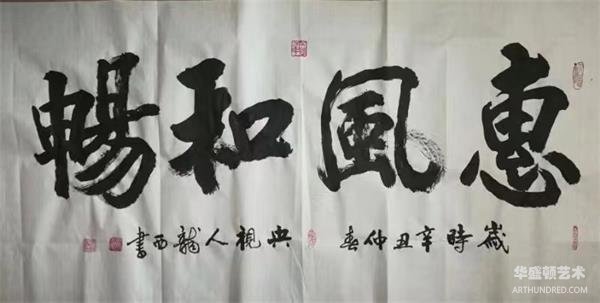 惠風和暢
歲時辛丑仲春 央視人龍西書
华盛顿艺术
ARTHUNDRED.COM